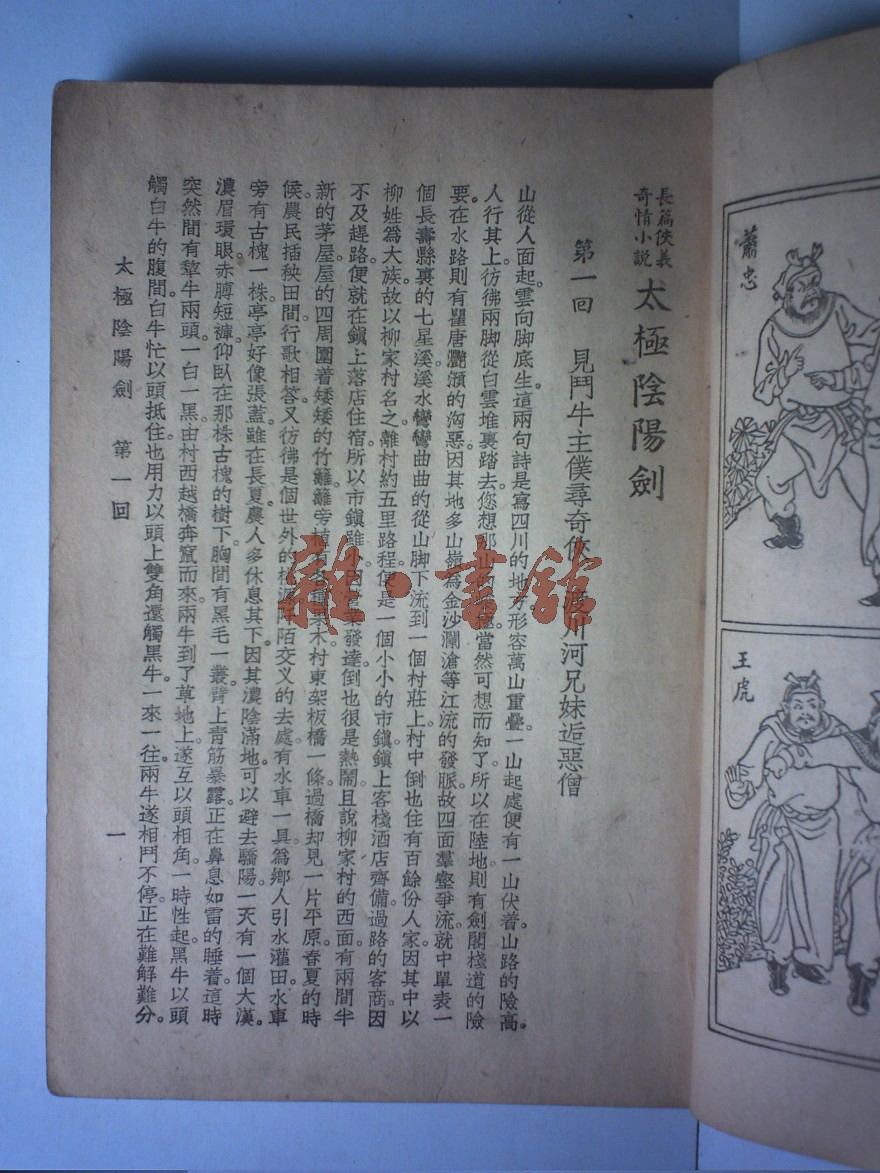 長篇俠義
奇情小說
太極陰陽劍
第一回 見鬥牛主僕尋奇俠 渡川河兄妹逅惡僧
山從人面起。雲向脚底生。這兩句詩是寫四川的地方形容萬山重疊。一山起處便有一山伏着。山路的險高。
人行其上。彷彿兩脚從白雲堆裏踏去。您想那山的 當然可想而知了。所以在陸地則有劍閣棧道的險
要。在水路則有瞿唐灧澦的洶惡。因其地多山嶺。爲金沙瀾滄等江流的發脈。故四面羣壑爭流。就中單表一
個長壽縣裏的七星溪。溪水彎彎曲曲的從山脚下流到一個村莊上。村中倒也住有百餘份人家。因其中以
柳姓爲大族。故以柳家村名之。離村約五里路程。便是一個小小的市鎭。鎭上客棧酒店齊備。過路的客商。因
不及趕路。便就在鎭上落店住宿。所以市鎭雖小。因 業發達。倒也很是熱鬧。且說柳家村的西面。有兩間半
新的茅屋。屋的四周圍着矮矮的竹籬。籬旁植有各種果木。村東架板橋一條。過橋却見一片平原。春夏的時
候。農民插秧田間。行歌相答。又彷彿是個世外的桃源。阡陌交叉的去處。有水車一具。爲鄉人引水灌田。水車
旁有古槐一株。亭亭好像張蓋。雖在長夏。農人多休息其下。因其濃陰滿地。可以避去驕陽。一天有一個大漢。
濃眉環眼。赤膊短褲。仰臥在那株古槐的樹下。胸間有黑毛一叢。臂上青筋暴露。正在鼻息如雷的睡着。這時
突然間有犂牛兩頭。一白一黑。由村西越橋奔竄而來。兩牛到了草地上。遂互以頭相角。一時性起。黑牛以頭
觸白牛的腹間。白牛忙以頭抵住。也用力以頭上雙角還觸黑牛。一來一往。兩牛遂相鬥不停。正在難解難分。
太極陰陽劍 第一回 一
蕭忠
王虎
雜·書館